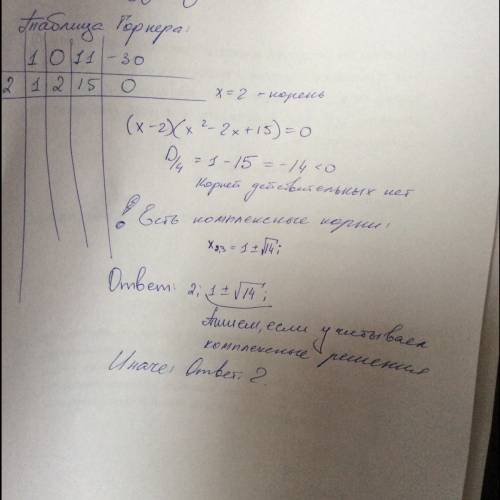 Таблица Горнера:
1 0 11 -30
2 1 2 15 0
x=2 - корень
(x-2)(x²-2x+15)=0
D/4 = 1-15 = -14 <0
Корней действительных нет
! Есть комплексные корни:
x₂,₃ = 1±√14 i
Ответ: 2; 1±√14 i
Пишем, если учитываем
комплексные решения
Иначе: Ответ: 2